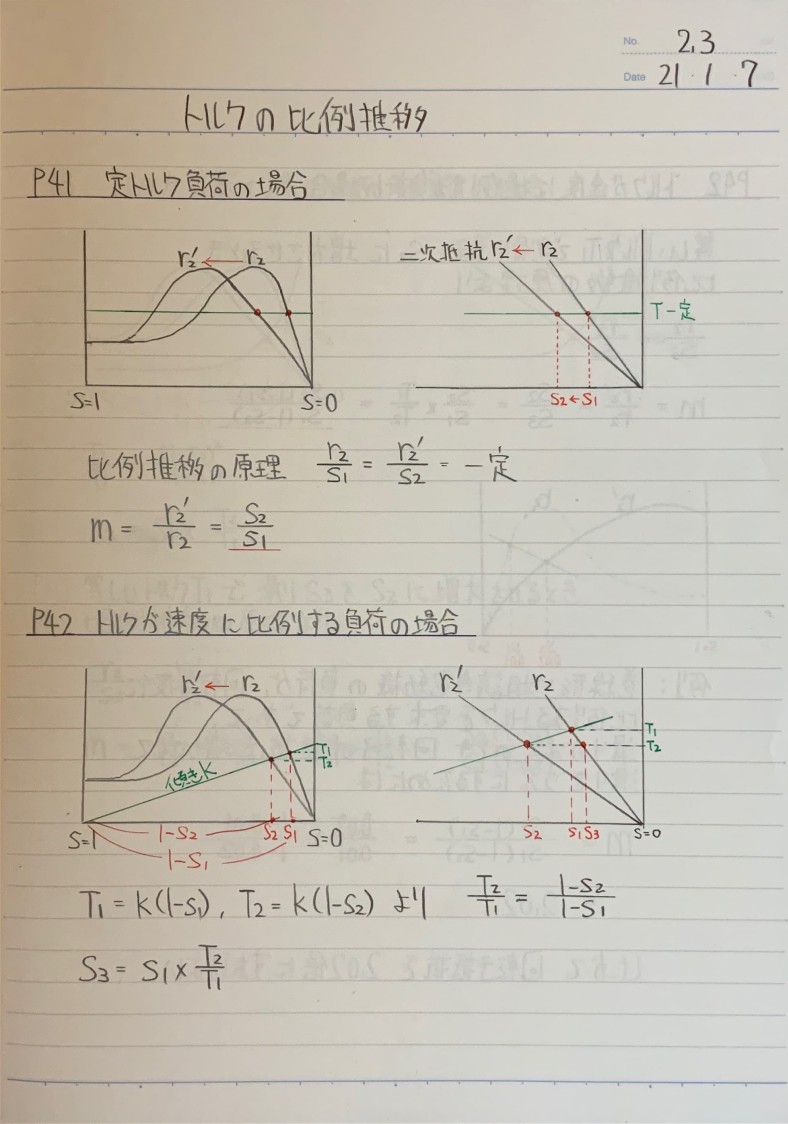 No. 2.3
Date 21・1・7
トルクの比例推移
P41 定トルク負荷の場合
r₂' ← r₂
S=1 S=0
二次抵抗 r₂' ← r₂
T一定
S₂ ← S₁
比例推移の原理 r₂/S₁ = r₂'/S₂ = 一定
m = r₂'/r₂ = S₂/S₁
P42 トルクが速度に比例する負荷の場合
r₂' ← r₂
T₁
T₂
傾きK
S=1 1-S₂ S₂ S₁ S=0
1-S₁
r₂' r₂
T₁
T₂
S₂ S₁ S₃ S=0
T₁ = K(1-S₁), T₂ = K(1-S₂) より T₂/T₁ = 1-S₂/1-S₁
S₃ = S₁ × T₂/T₁